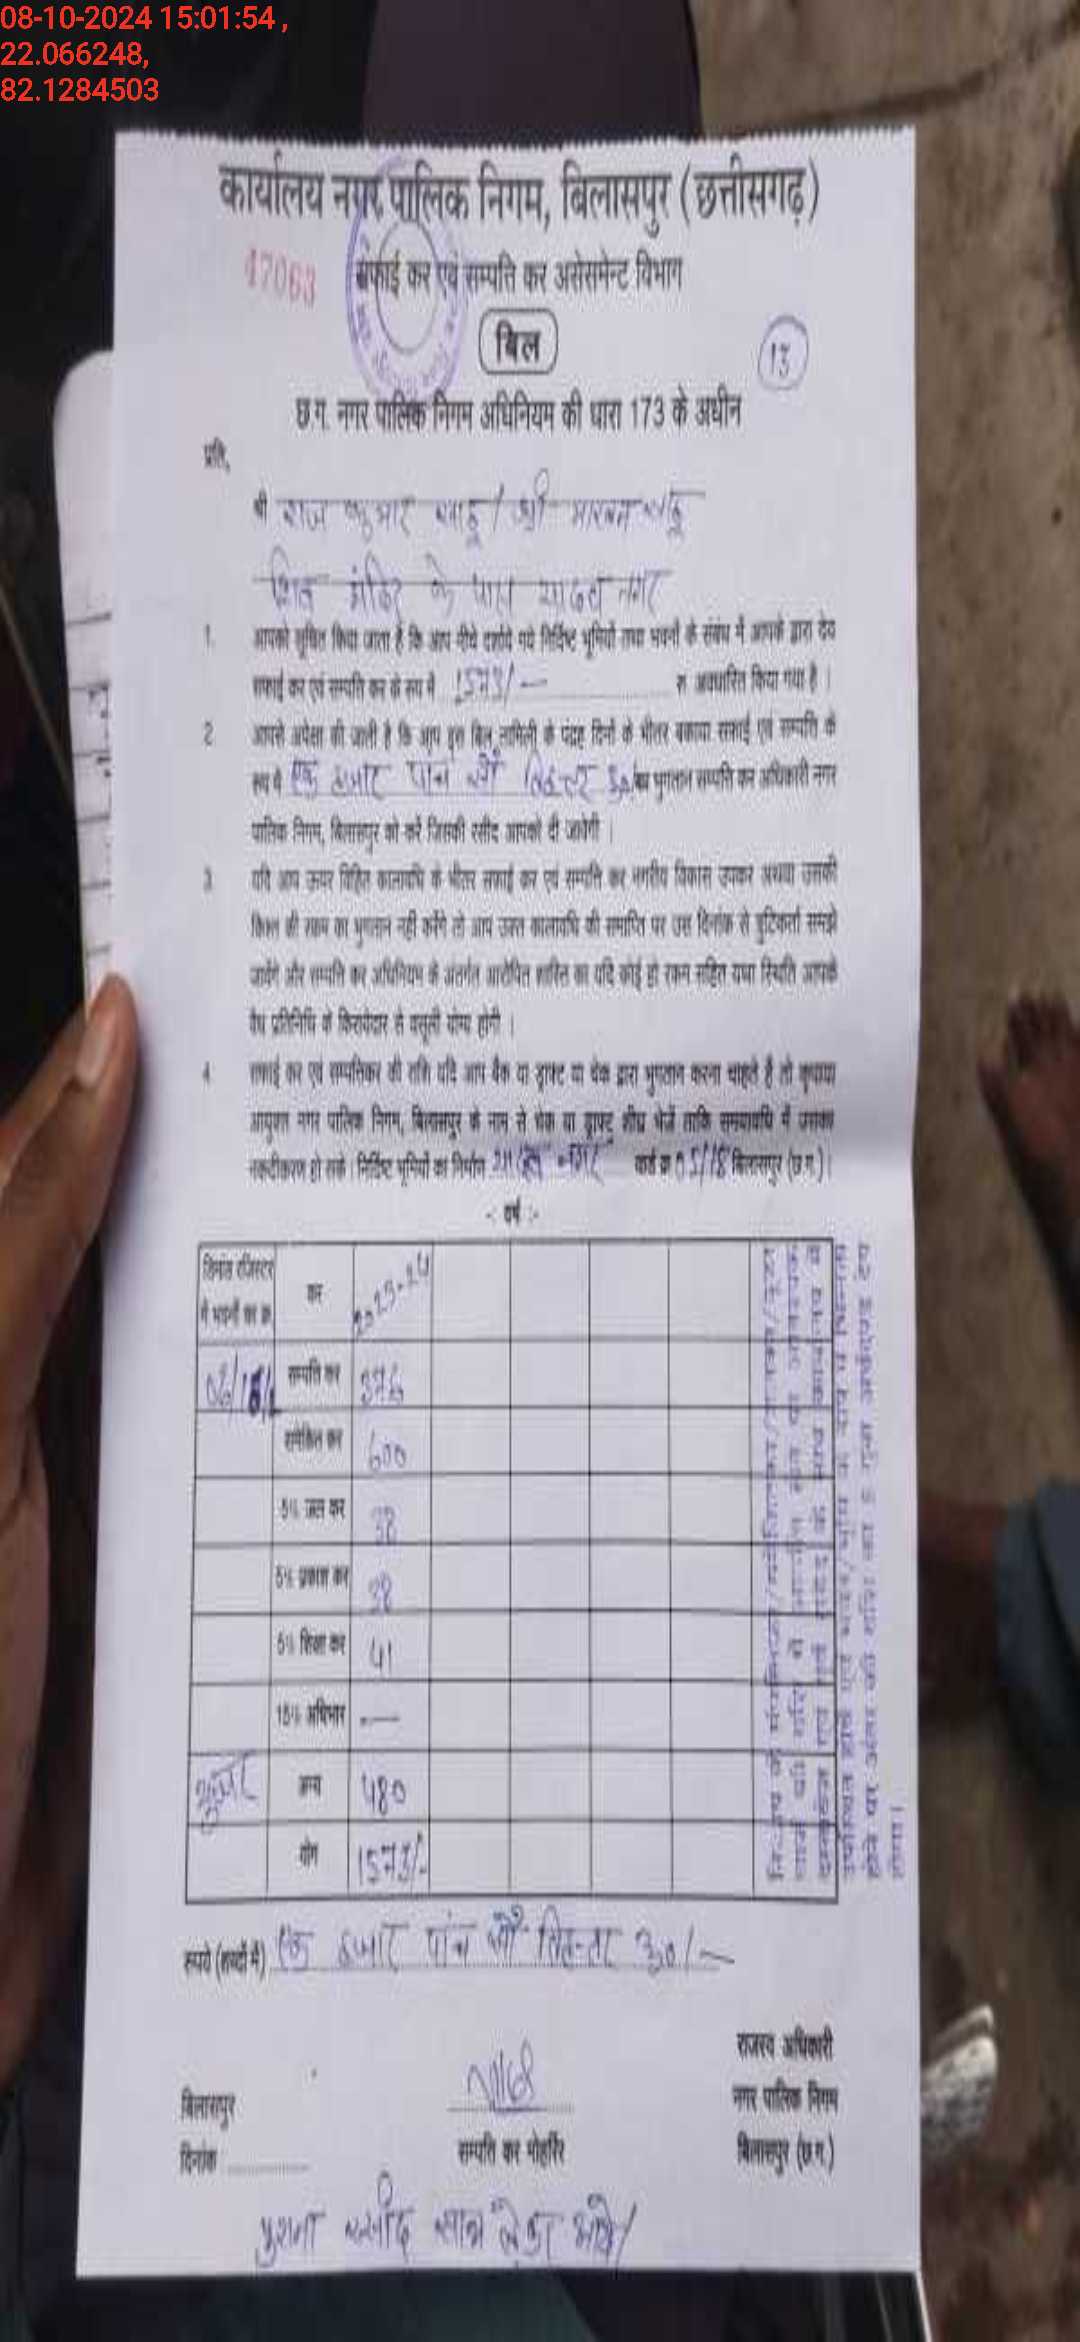 08-10-2024 15:01:54 ,
22.066248,
82.1284503
कार्यालय नगर पालिक निगम, बिलासपुर (छत्तीसगढ़)
47063
सफाई कर एवं सम्पति कर असेसमेन्ट विभाग
बिल
13
छ.ग. नगर पालिक निगम अधिनियम की धारा 173 के अधीन
प्रति,
श्री राज कुमार साहू / श्री माखन साहू
शिव मंदिर के पास यादव नगर
1. आपको सूचित किया जाता है कि आप नीचे दर्शाये गये निर्दिष्ट भूमियों तथा भवनों के संबंध में आपके द्वारा देय
सफाई कर एवं सम्पति कर के रूप में 1573/- रु अवधारित किया गया है ।
2 आपसे अपेक्षा की जाती है कि आप इस बिल तामिली के पंद्रह दिनों के भीतर बकाया सफाई एवं सम्पति के
रूप में एक हजार पांच सौ तिहत्तर रू0/ का भुगतान सम्पति कर अधिकारी नगर
पालिक निगम, बिलासपुर को करें जिसकी रसीद आपको दी जावेगी ।
3 यदि आप ऊपर विहित कालावधि के भीतर सफाई कर एवं सम्पति कर नगरीय विकास उपकर अथवा उसकी
किश्त की रकम का भुगतान नही करेंगे तो आप उक्त कालावधि की समाप्ति पर उस दिनांक से त्रुटिकर्ता समझे
जावेंगे और सम्पति कर अधिनियम के अंतर्गत आरोपित शास्ति का यदि कोई हो रकम सहित यथा स्थिति आपके
वैध प्रतिनिधि के किरायेदार से वसूली योग्य होगी ।
4 सफाई कर एवं सम्पत्तिकर की राशि यदि आप बैंक या ड्राफ्ट या चेक द्वारा भुगतान करना चाहते है तो कृपया
आयुक्त नगर पालिक निगम, बिलासपुर के नाम से चेक या ड्राफ्ट शीघ्र भेजें ताकि समयावधि में उसका
नकदीकरण हो सके । निर्दिष्ट भूमियों का निर्धाण यादव नगर वार्ड क्र 05/18 बिलासपुर (छ.ग.)।
-: वर्ष :-
डिमांड रजिस्टर में भवनों का क्र. कर 2023-24
06/ सम्पति कर 376
समेकित कर 600
5% जल कर 38
5% प्रकाश कर 38
5% शिक्षा कर 41
15% अधिभार —
यूजर अन्य 480
योग 1573/-
रूपये (शब्दों में) एक हजार पांच सौ तिहत्तर रू0/-
राजस्व अधिकारी
बिलासपुर नगर पालिक निगम
दिनांक सम्पति कर मोहर्रिर बिलासपुर (छ.ग.)
पुराना रसीद साथ लेकर आवे/